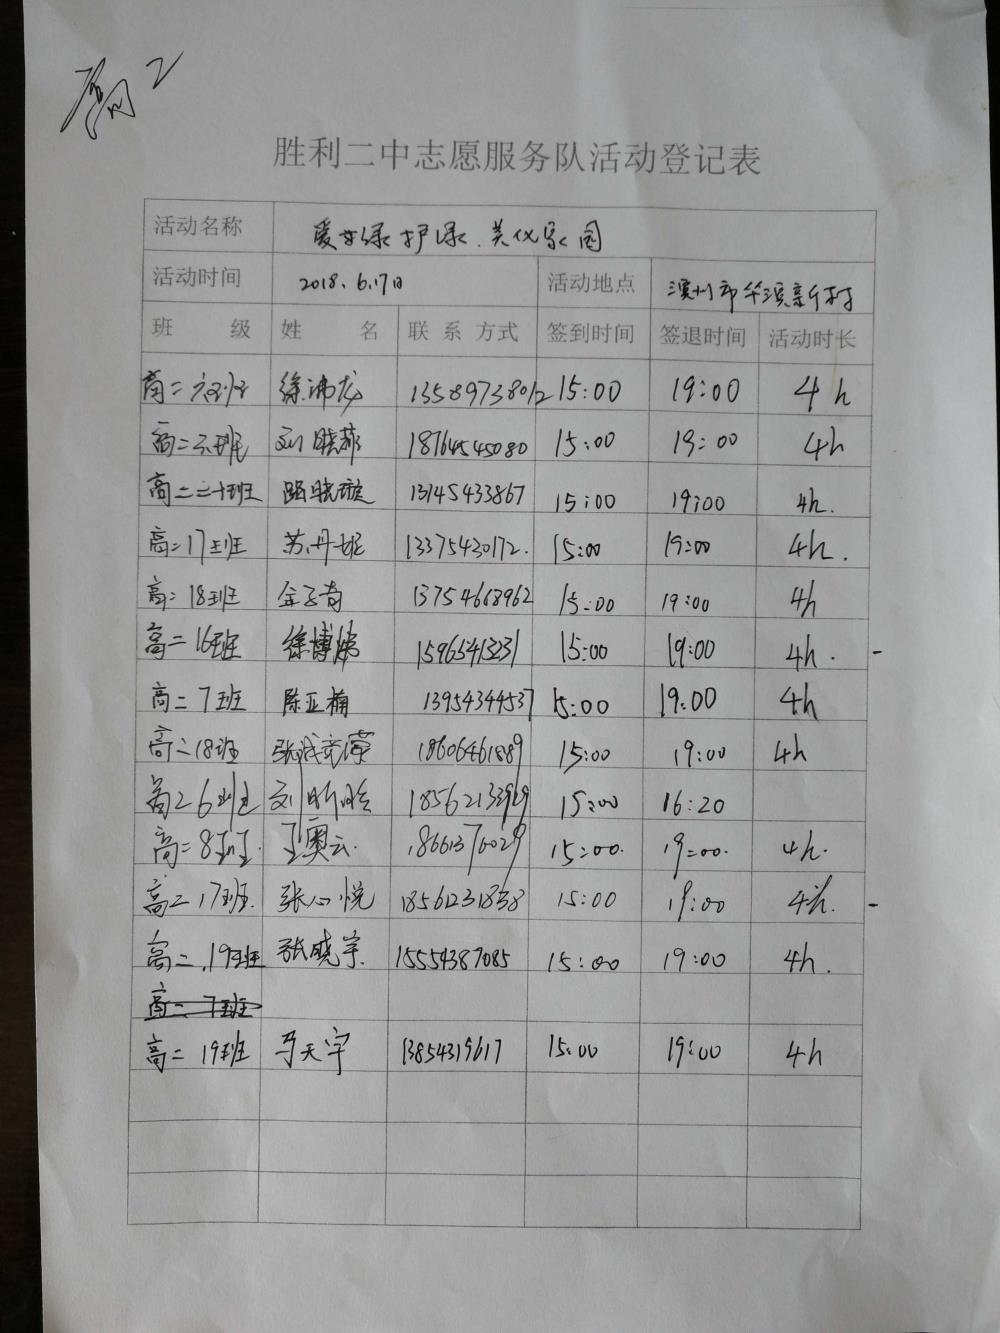 高2
胜利二中志愿服务队活动登记表
活动名称 爱绿护绿.美化家园
活动时间 2018.6.17日 活动地点 滨州市华滨新村
班 级 姓 名 联系方式 签到时间 签退时间 活动时长
高二六班 徐沛龙 13589738012 15:00 19:00 4h
高二三班 刘晓菲 18764545080 15:00 19:00 4h
高二二十班 路晓璇 13145433867 15:00 19:00 4h.
高二17班 苏丹妮 13375430172. 15:00 19:00 4h.
高二18班 金子奇 13754668962 15:00 19:00 4h
高二16班 徐博 15965413231 15:00 19:00 4h.
高二7班 陈亚楠 13954344537 15:00 19:00 4h
高二18班 张 18606461889 15:00 19:00 4h
高二6班 刘昕 18562133929 15:00 16:20
高二8班. 王奥云. 18661376029 15:00. 19:00. 4h.
高二17班. 张心悦 18561231838 15:00 19:00 4h.
高二.19班 张晓宇. 15554387085 15:00 19:00 4h.
高二7班
高二19班 马天宇 13854319617 15:00 19:00 4h